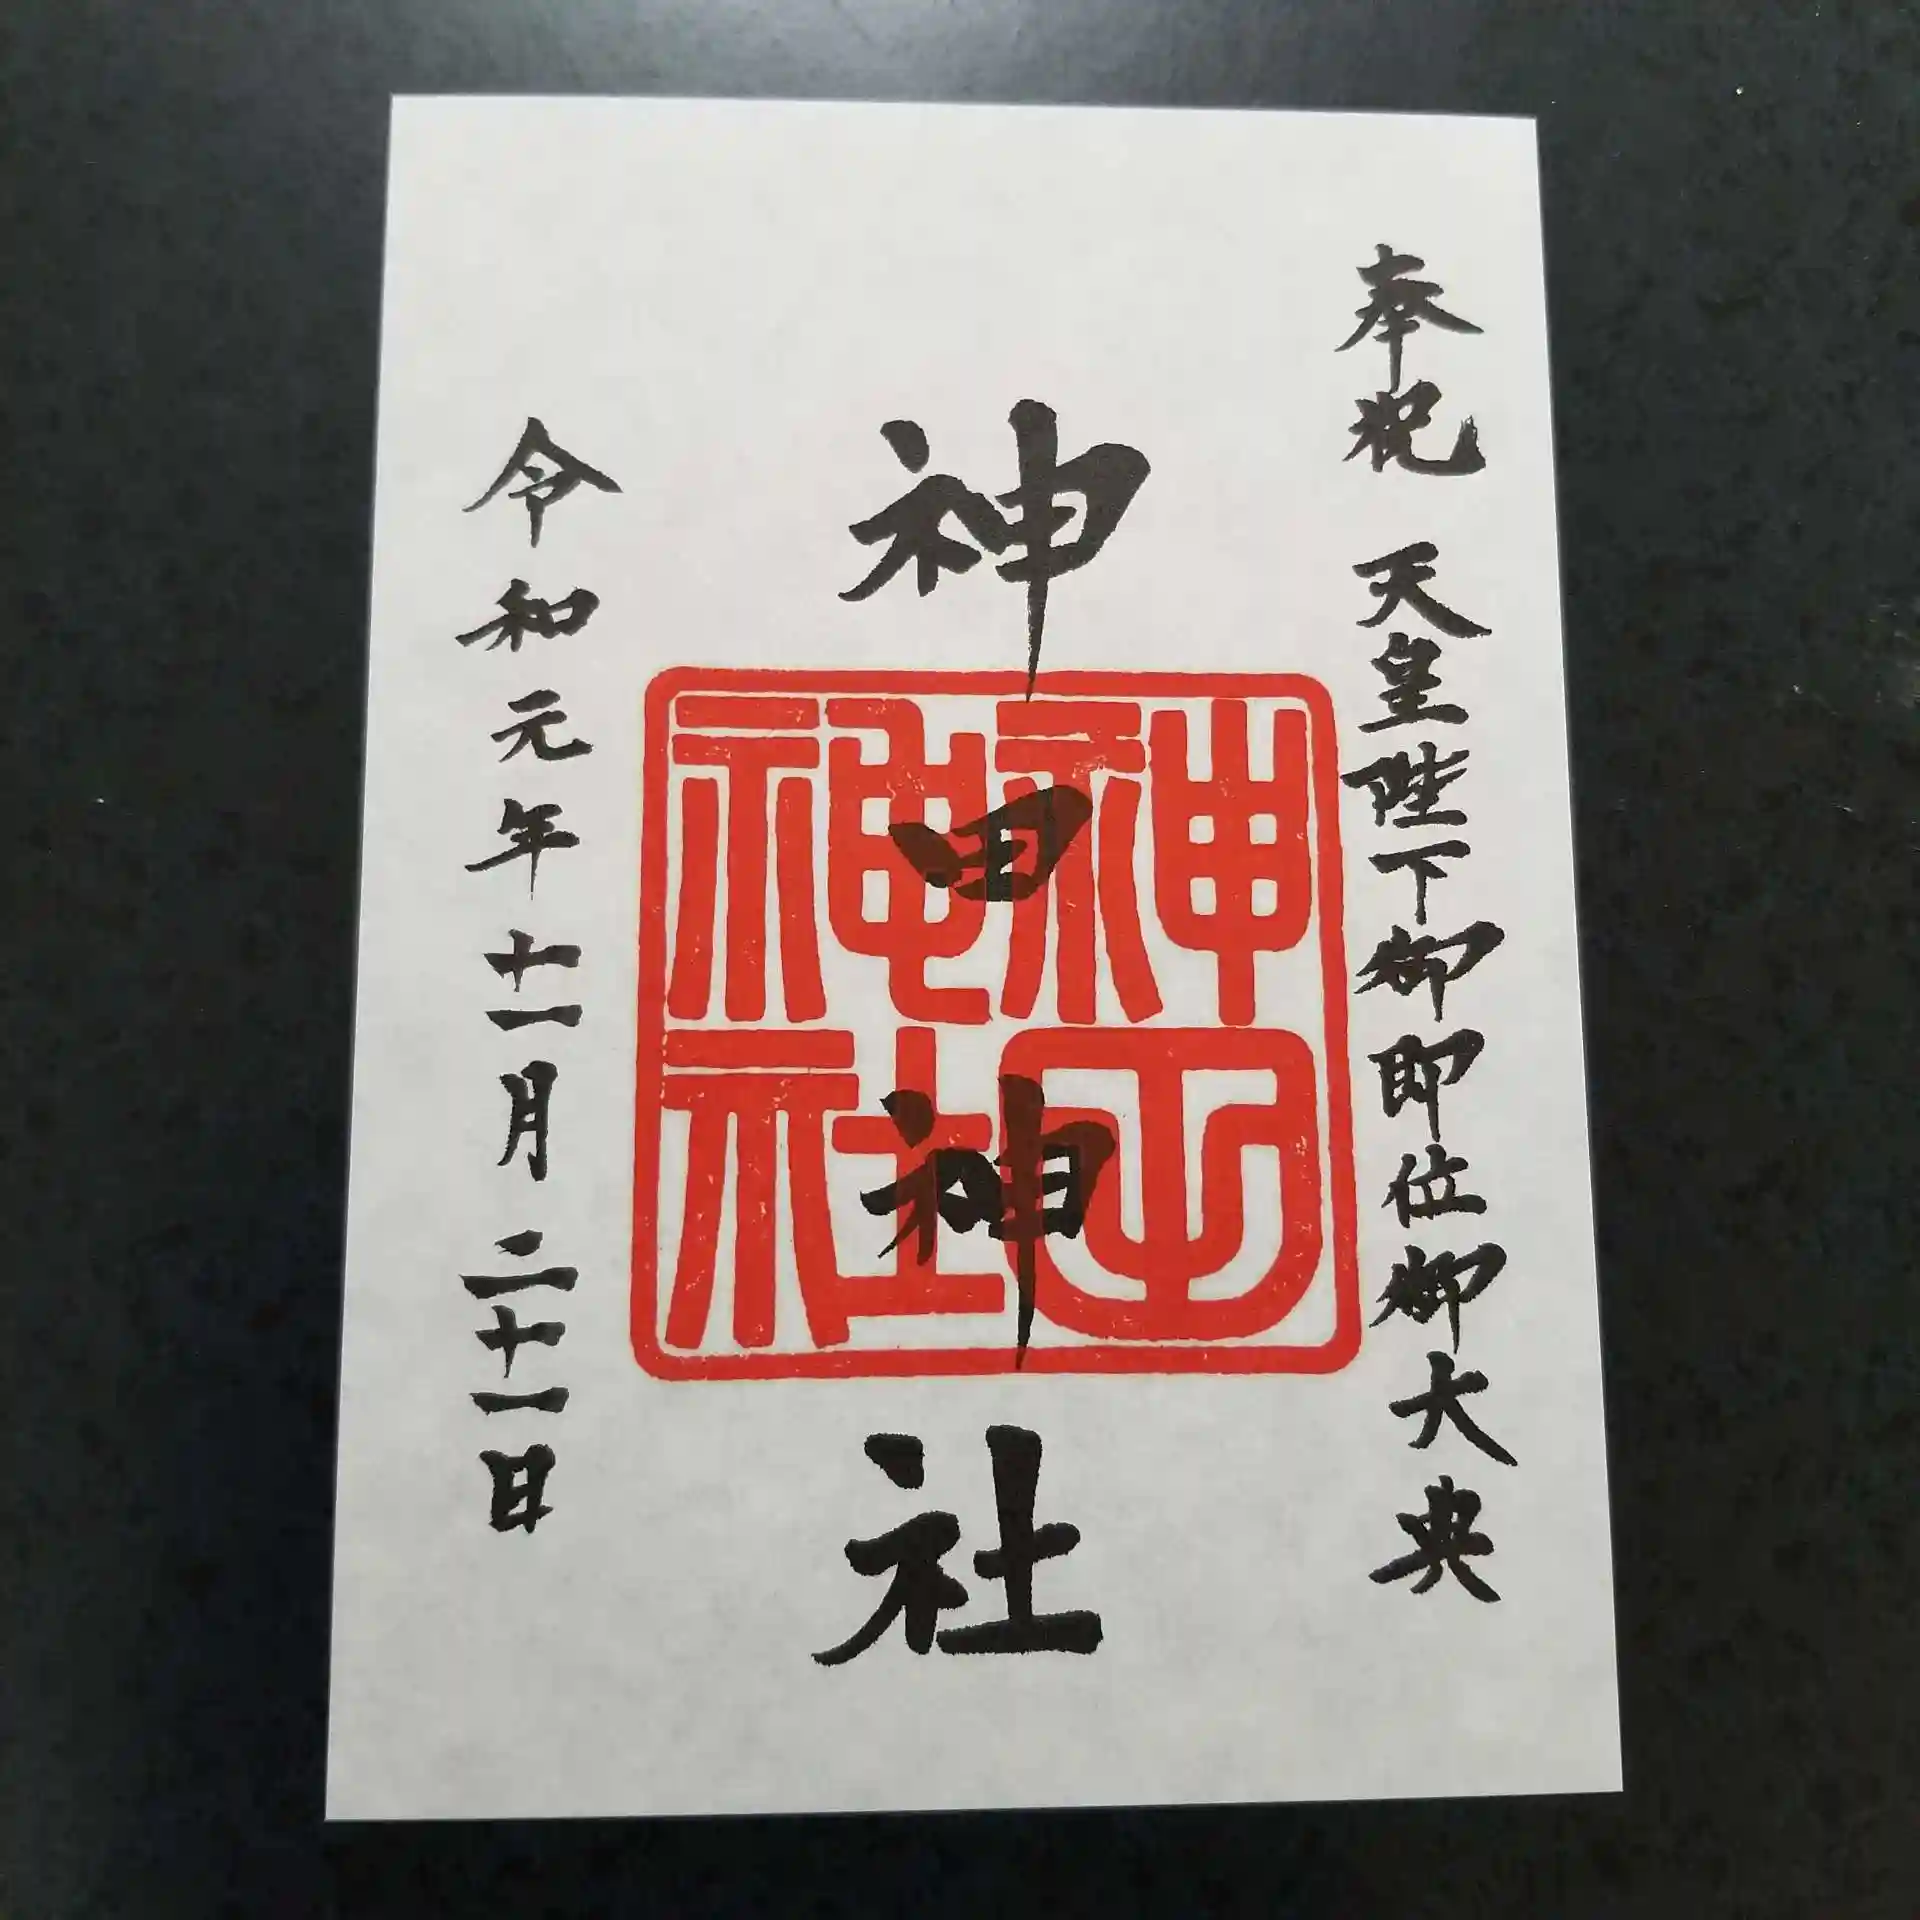 奉祝 天皇陛下御即位御大典
神田神社
神田神社
令和元年十一月二十一日